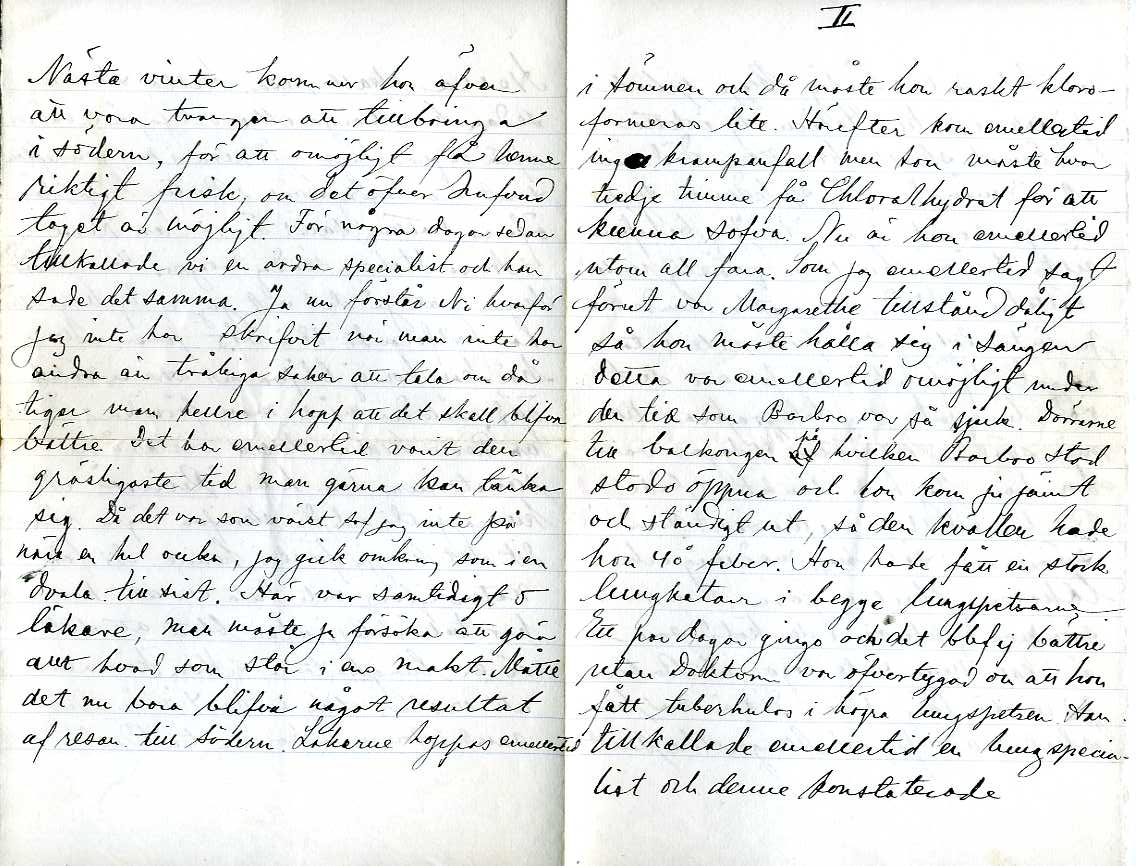 Nästa vinter kommer hon äfven
att vara tvungen att tillbringa
i södern, för att omöjligt få henne
riktigt frisk, om det öfver hufvud
taget är möjligt. För några dagar sedan
tillkallade vi en andra specialist och han
sade det samma. Ja nu förstår Ni hvarför
jag inte har skrifvit när man inte har
andra än tråkiga saker att tala om då
tiger man hellre i hopp att det skall blifva
bättre. Det har emellertid varit den
gräsligaste tid man gärna kan tänka
sig. Då det var som värst sof jag inte på
nära en hel vecka, jag gick omkring som i en
dvala till sist. Här var samtidigt 5
läkare, man måste ju försöka att göra
allt hvad som står i ens makt. Måtte
det nu bara blifva något resultat
af resan till södern. Läkarne hoppas emellertid
II
i sömnen och då måste hon raskt kloro-
formeras lite. Härefter kom emellertid
inga krampanfall men hon måste hvar
tredje timme få Chloralhydrat för att
kunna sofva. Nu är hon emellertid
utom all fara. Som jag emellertid sagt
förut var Margarethe tillstånd dåligt
så hon måste hålla sig i sängen
detta var emellertid omöjligt under
den tid som Barbro var så sjuk. Dörrarne
till balkongen på hvilken Barbro stod
stodo öppna och hon kom ju jämt
och ständigt ut, så den kvällen hade
hon 40 feber. Hon hade fått en stark
lungkatarr i begge lungspetsarne
Ett par dagar gingo och det blef ej bättre
utan Doktorn var öfvertygad om att hon
fått tuberkulos i högra lungspetsen. Han
tillkallade emellertid en lungspecia-
list och denne konstaterade